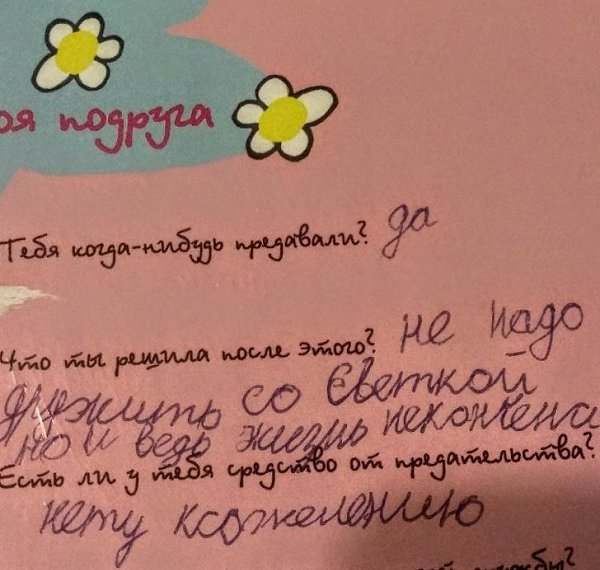 оя подруга
Тебя когда-нибудь предавали? да
Что ты решила после этого? не надо
дружить со Светкой
но и ведь жизнь некончена
Есть ли у тебя средство от предательства?
нету ксожелению